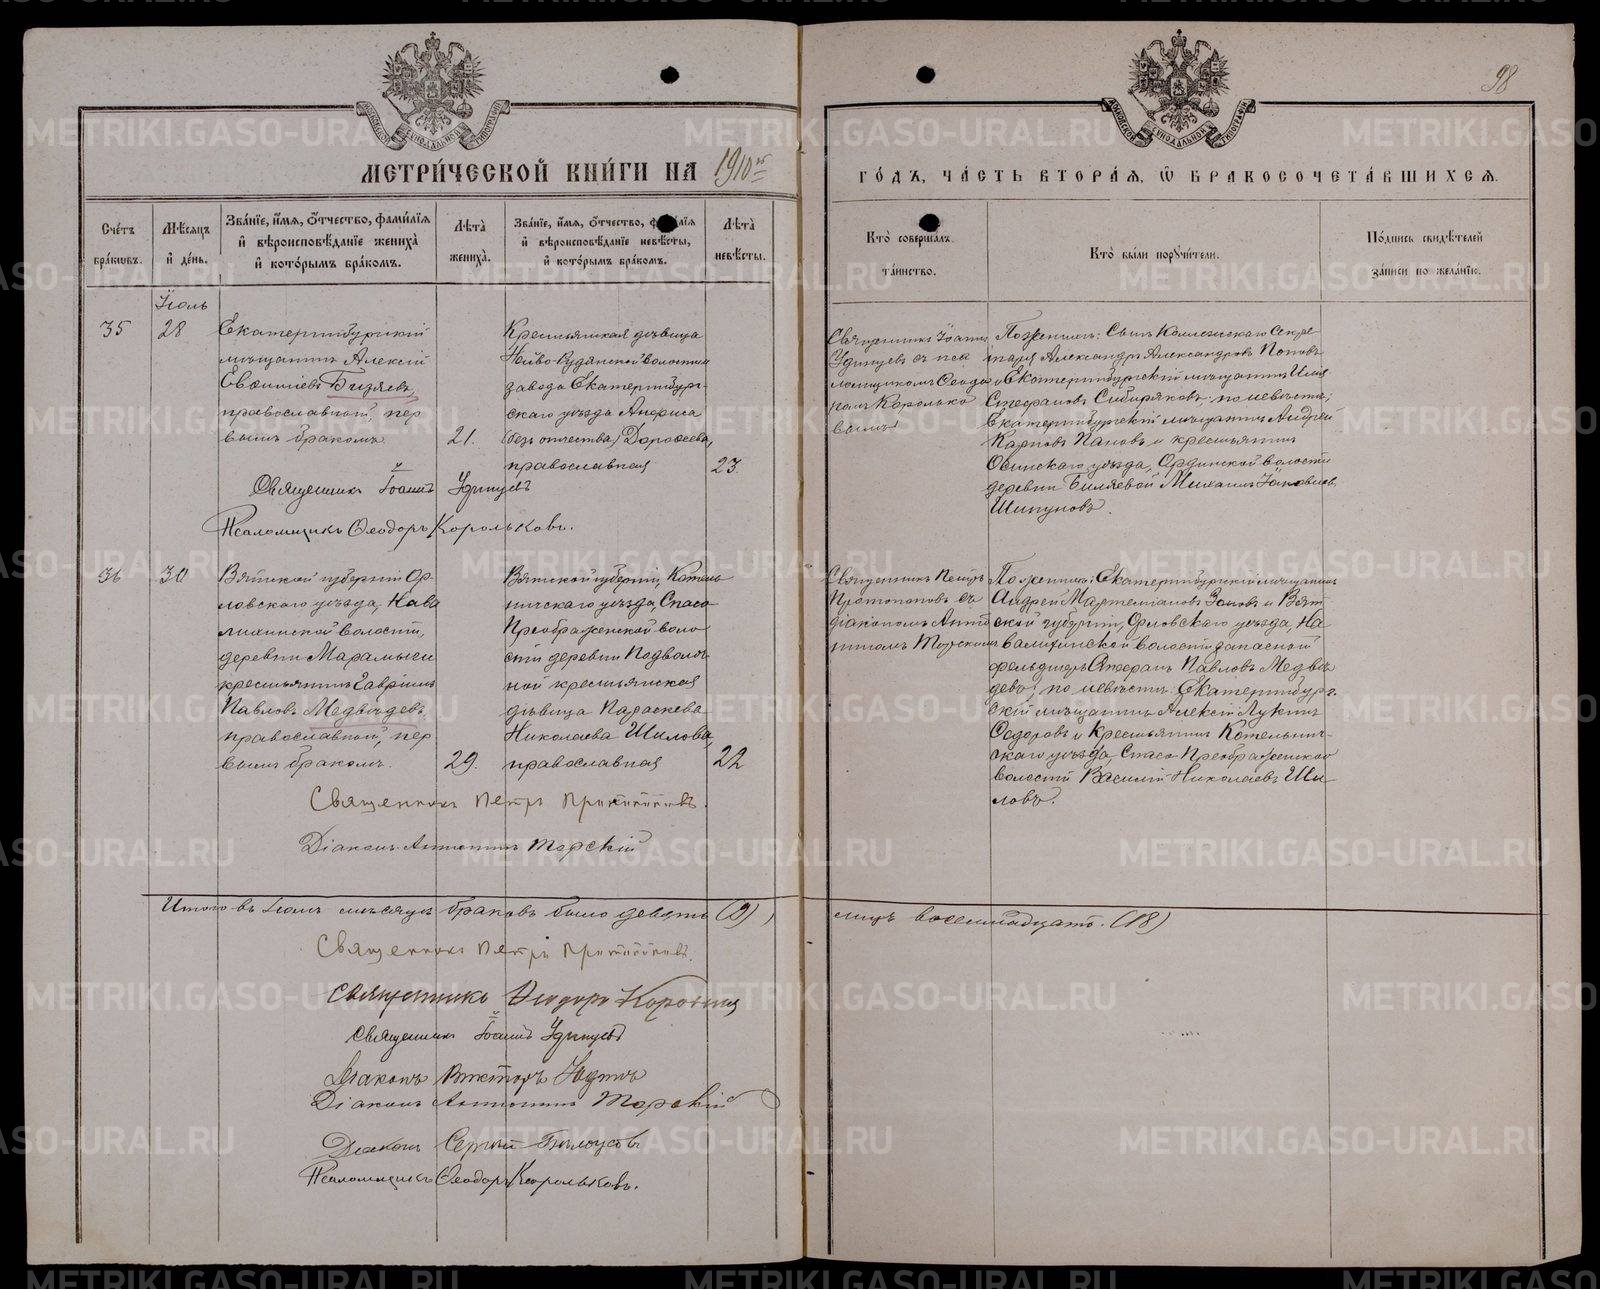 98
МЕТРИ́ЧЕСКОЙ КНИ́ГИ НА 1910й
ГО́ДЪ, ЧА́СТЬ ВТОРА́Я, Ѽ БРАКОСОЧЕТА́ВШИХСЯ.
Сче́тъ бра́ковъ.
Мѣ́сяцъ и҆ де́нь.
Зва́нїе, и҆́мя, о҆́тчество, фами́лїя
и҆ вѣроисповѣ́данїе жениха̀
и҆ кото́рымъ бра́комъ.
Лѣ́та жениха̀.
Зва́нїе, и҆́мя, о҆́тчество, фами́лїя
и҆ вѣроисповѣ́данїе невѣ́сты,
и҆ кото́рымъ бра́комъ.
Лѣ́та невѣ́сты.
Кто̀ соверша́лъ
та́инство.
Кто̀ бы́ли поручи́тели.
По́дпись свидѣ́телей
за́писи по жела́нїю.
Іюль
35
28
Екатеринбургскій
мѣщанинъ Алексій
Евѳиміевъ Бизяевъ,
православный, пер
вымъ бракомъ
21.
Крестьянская дѣвица
Нейво-Рудянской волости и
завода Екатеринбург-
скаго уѣзда Анфиса
(безъ отчества) Дороѳеева,
православная
23.
Священникъ Іоаннъ
Удинцевъ съ пса
ломщикомъ Ѳеодо
ромъ Королько
вымъ
По женихѣ: Сынъ Коллежскаго Секре-
таря Александръ Александровъ Поповъ
и Екатеринбургскій мѣщанинъ Илія
Стефановъ Сибиряковъ, по невѣстѣ;
Екатеринбургскій мѣщанинъ Андрей
Карповъ Пановъ и крестьянинъ
Осинскаго уѣзда, Ординской волости
деревни Биляевой Михаилъ Іаковлевъ
Шипуновъ.
Священникъ Іоаннъ Удинцевъ
Псаломщикъ Ѳеодоръ Корольковъ.
36
30
Вятской губерніи Ор-
ловскаго уѣзда, Нава
лихинской волости,
деревни Марамыги
крестьянинъ Гавріилъ
Павловъ Медвѣдевъ,
православный, пер
вымъ бракомъ.
29.
Вятской губерніи, Котель
ничскаго уѣзда, Спасо
Преображенской воло
сти деревни Подволоч-
ной крестьянская
дѣвица Параскева
Николаева Шилова,
православная
22
Священникъ Петръ
Протопоповъ съ
діакономъ Анто
ниномъ Торскимъ
По женихѣ: Екатеринбургскій мѣщанинъ
Андрей Мартеміановъ Зоновъ и Вят-
ской губерніи, Орловскаго уѣзда, На
валихинской волости запасный
фельдшеръ Стефанъ Павловъ Медвѣ
девъ; по невѣстѣ: Екатеринбург-
скій мѣщанинъ Алексій Лукинъ
Сидоровъ и Крестьянинъ Котельнич-
скаго уѣзда, Спасо Преображенской
волости Василій Николаевъ Ши-
ловъ.
Священникъ Петръ Протопоповъ.
Діаконъ Антонинъ Торскій
Итого въ Іюлѣ мѣсяцѣ браковъ было девять (9),
лицъ восемнадцать. (18)
Священникъ Петръ Протопоповъ.
Священникъ Ѳеодоръ Коровинъ
Священникъ Іоаннъ Удинцевъ
Діаконъ Викторъ
Діаконъ Антонинъ Торскій
Діаконъ Сергій Бѣлоусовъ
Псаломщикъ Ѳеодоръ Корольковъ.
METRIKI.GASO-URAL.RU